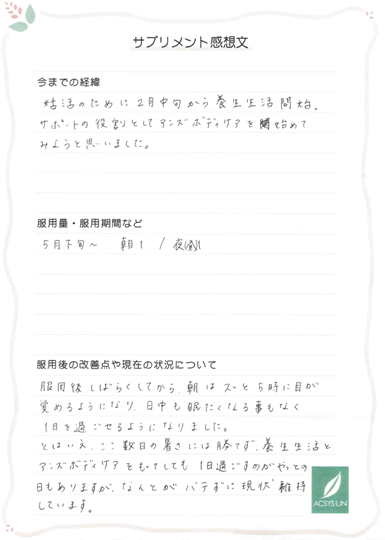 サプリメント感想文
今までの経緯
妊活のために2月中旬から養生生活開始。
サポートの役割としてアンズボディケアを始めて
みようと思いました。
服用量・服用期間など
5月下旬～　朝1 / 夜1
服用後の改善点や現在の状況について
服用後しばらくしてから、朝はズンと5時に目が
覚めるようになり、日中も眠たくなる事もなく
1日を過ごせるようになりました。
とはいえ、ここ数日の暑さには勝てず、養生生活と
アンズボディケアをもってしても1日過ごすのがやっとの
日もありますが、なんとかバテずに現状維持
しています。
ACSYSUN